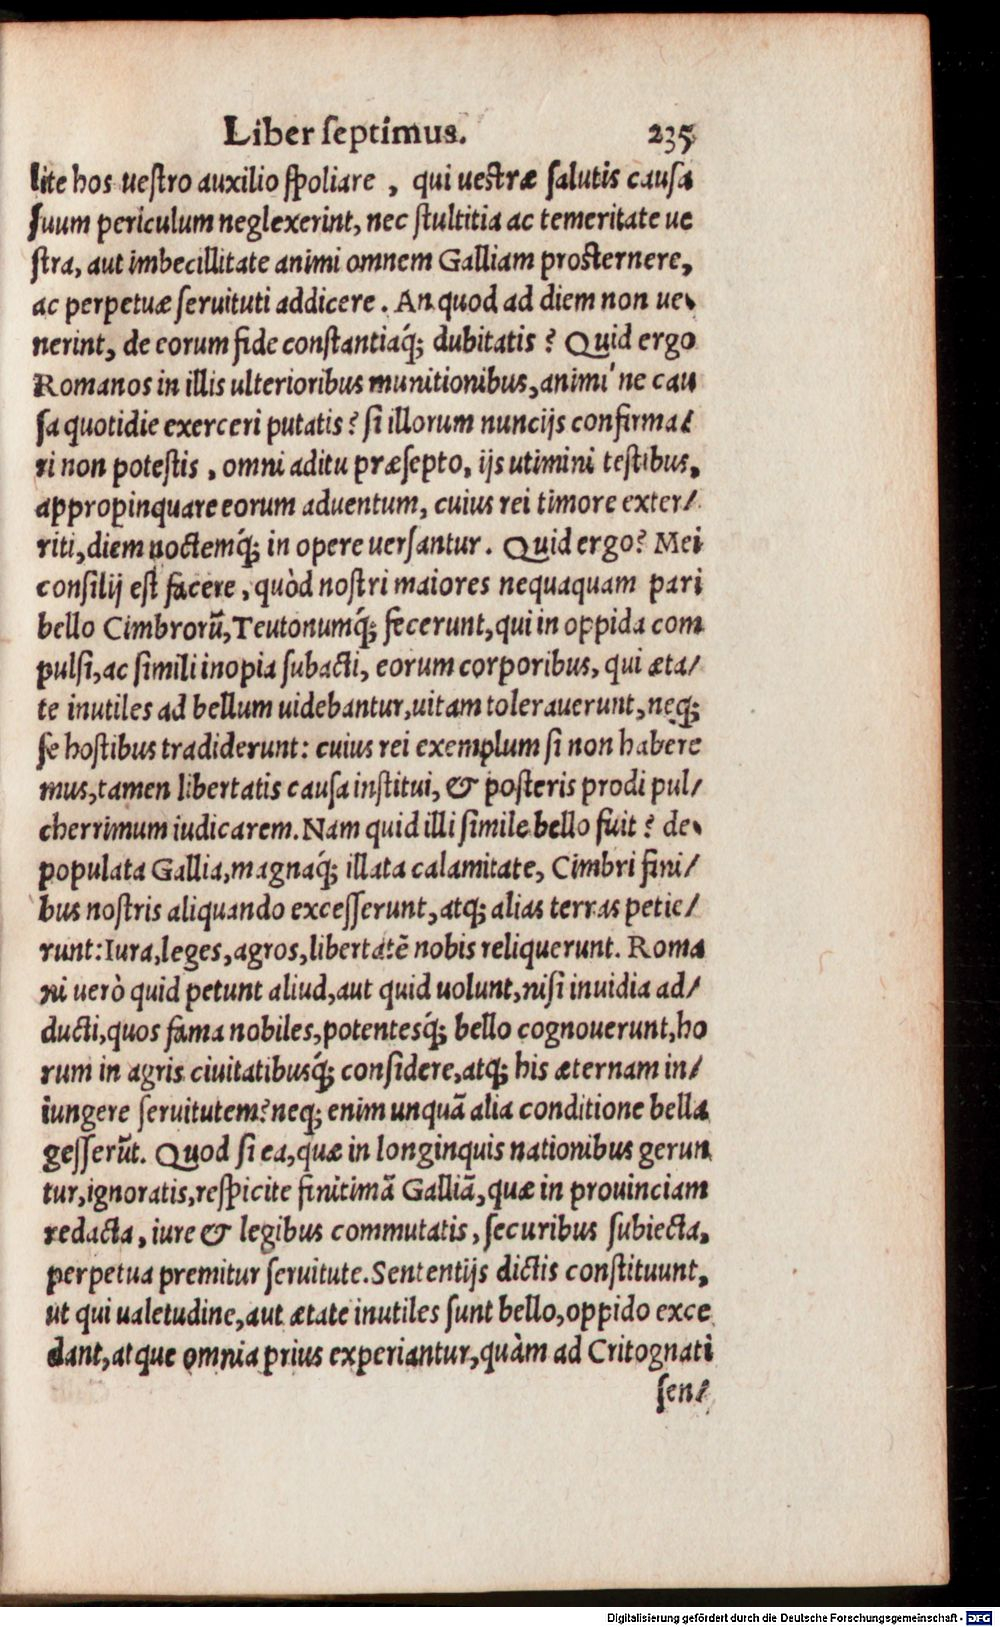 Liber ſeptimus. 235
lite hos ueſtro auxilio ſpoliare , qui ueſtræ ſalutis cauſa
ſuum periculum neglexerint, nec ſtultitia ac temeritate ue
ſtra, aut imbecillitate animi omnem Galliam proſternere,
ac perpetuæ ſeruituti addicere . An quod ad diem non ue⸗
nerint, de eorum fide conſtantiaq́; dubitatis ? Quid ergo
Romanos in illis ulterioribus munitionibus, animi ́ne cau
ſa quotidie exerceri putatis? ſi illorum nuncijs confirma⸗
ri non poteſtis , omni aditu præſepto, ijs utimini teſtibus,
appropinquare eorum aduentum, cuius rei timore exter/
riti, diem noctemq́; in opere uerſantur . Quid ergo? Mei
conſilij eſt facere , quòd noſtri maiores nequaquam pari
bello Cimbrorũ, Teutonumq́; fecerunt, qui in oppida com
pulſi, ac ſimili inopia ſubacti, eorum corporibus, qui æta/
te inutiles ad bellum uidebantur, uitam tolerauerunt, neq;
ſe hoſtibus tradiderunt: cuius rei exemplum ſi non habere
mus, tamen libertatis cauſa inſtitui, & poſteris prodi pul/
cherrimum iudicarem. Nam quid illi ſimile bello fuit ? de⸗
populata Gallia, magnaq́; illata calamitate, Cimbri fini/
bus noſtris aliquando exceſſerunt, atq; alias terras petie/
runt: Iura, leges, agros, libertatẽ nobis reliquerunt. Roma
ni uerò quid petunt aliud, aut quid uolunt, niſi inuidia ad/
ducti, quos fama nobiles, potentesq́; bello cognouerunt, ho
rum in agris ciuitatibusq́; conſidere, atq; his æternam in/
iungere ſeruitutem? neq; enim unquã alia conditione bella
geſſerũt. Quod ſi ea, quæ in longinquis nationibus gerun
tur, ignoratis, reſpicite finitimã Galliã, quæ in prouinciam
redacta, iure & legibus commutatis, ſecuribus ſubiecta,
perpetua premitur ſeruitute. Sententijs dictis conſtituunt,
ut qui ualetudine, aut ætate inutiles ſunt bello, oppido exce
dant, atque omnia prius experiantur, quàm ad Critognati
ſen/
Digitalisierung gefördert durch die Deutsche Forschungsgemeinschaft - DFG